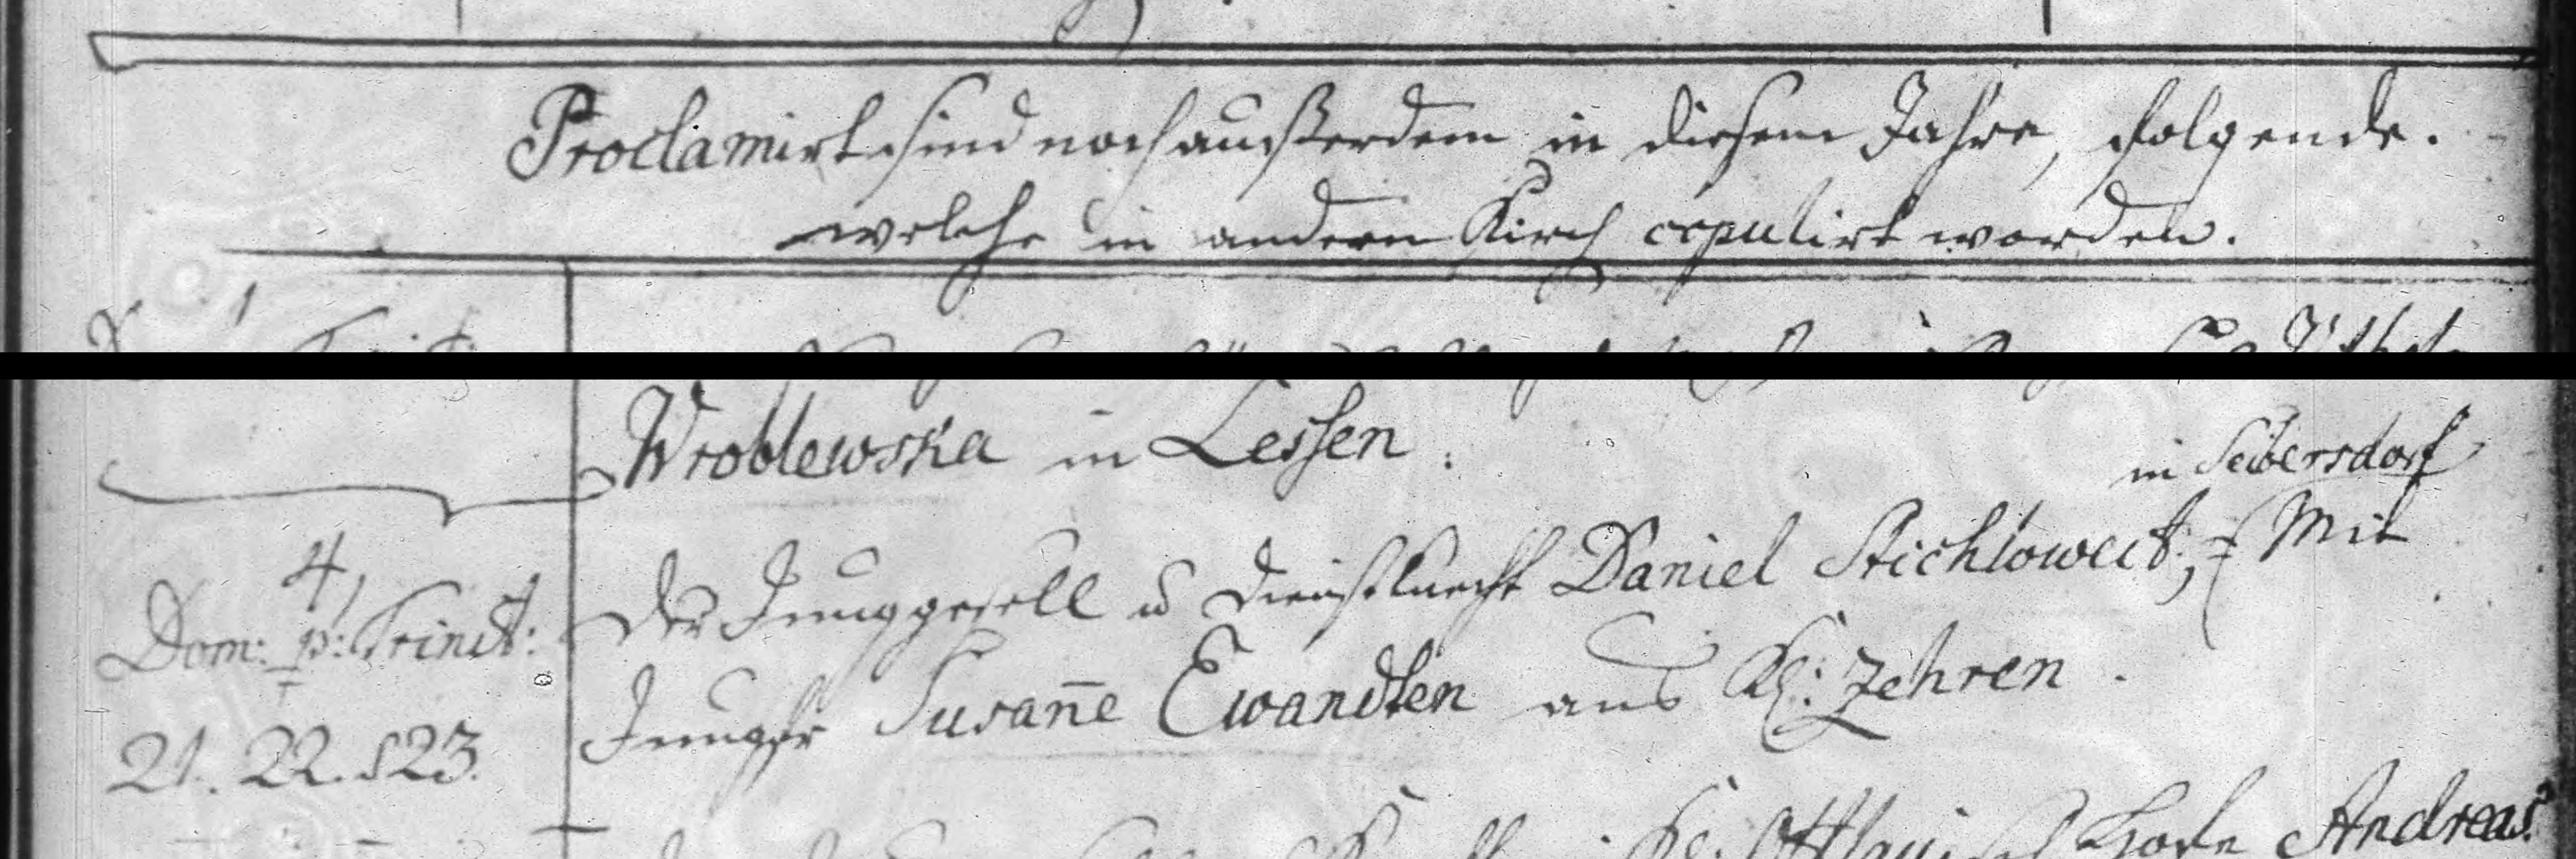 Proclamirt sind noch ausserdem in diesem Jahre, folgende.
welche in andern Kirch copulirt worden.
1
Wroblewska in Lessen.
in Seibersdorf
4,
Der Junggesell u Dienstknecht Daniel Stichloweit, Mit
Dom: p: Trinit:
Jungfr Susan̄e Ewandten aus Kl: Zehren.
21. 22. & 23.
Andreas